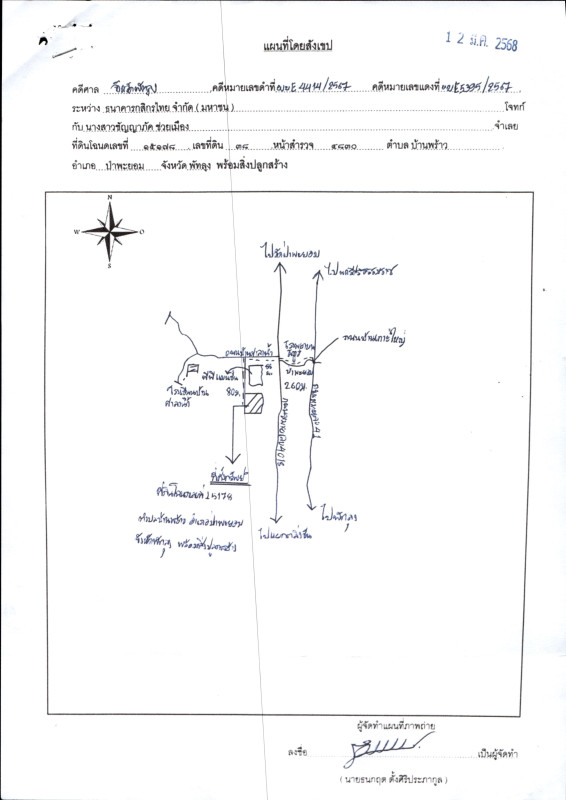 1 2 มี.ค. 2568
แผนที่โดยสังเขป
คดีศาล จังหวัดพัทลุง คดีหมายเลขดำที่ ผบE4414/2567 คดีหมายเลขแดงที่ ผบE5395/2567
ระหว่าง ธนาคารกสิกรไทย จำกัด ( มหาชน ) โจทก์
กับ นางสาวชัญญาภัค ช่วยเมือง จำเลย
ที่ดินโฉนดเลขที่ ๑๕๑๗๘ เลขที่ดิน ๓๘ หน้าสำรวจ ๔๘๓๐ ตำบล บ้านพร้าว
อำเภอ ป่าพะยอม จังหวัด พัทลุง พร้อมสิ่งปลูกสร้าง
N
W O
S
ไปวัดป่าพะยอม
ไปนครศรีธรรมราช
โรงพยาบาล
ป่าพะยอม
80ม.
260ม.
โรงเรียนบ้าน
ที่ตั้งทรัพย์
ที่ดินโฉนดเลขที่ 15178
ตำบลบ้านพร้าว อำเภอป่าพะยอม
จังหวัดพัทลุง พร้อมสิ่งปลูกสร้าง
ไปพัทลุง
ผู้จัดทำแผนที่ภาพถ่าย
ลงชื่อ เป็นผู้จัดทำ
( นายธนกฤต ตั้งศิริประภากูล )